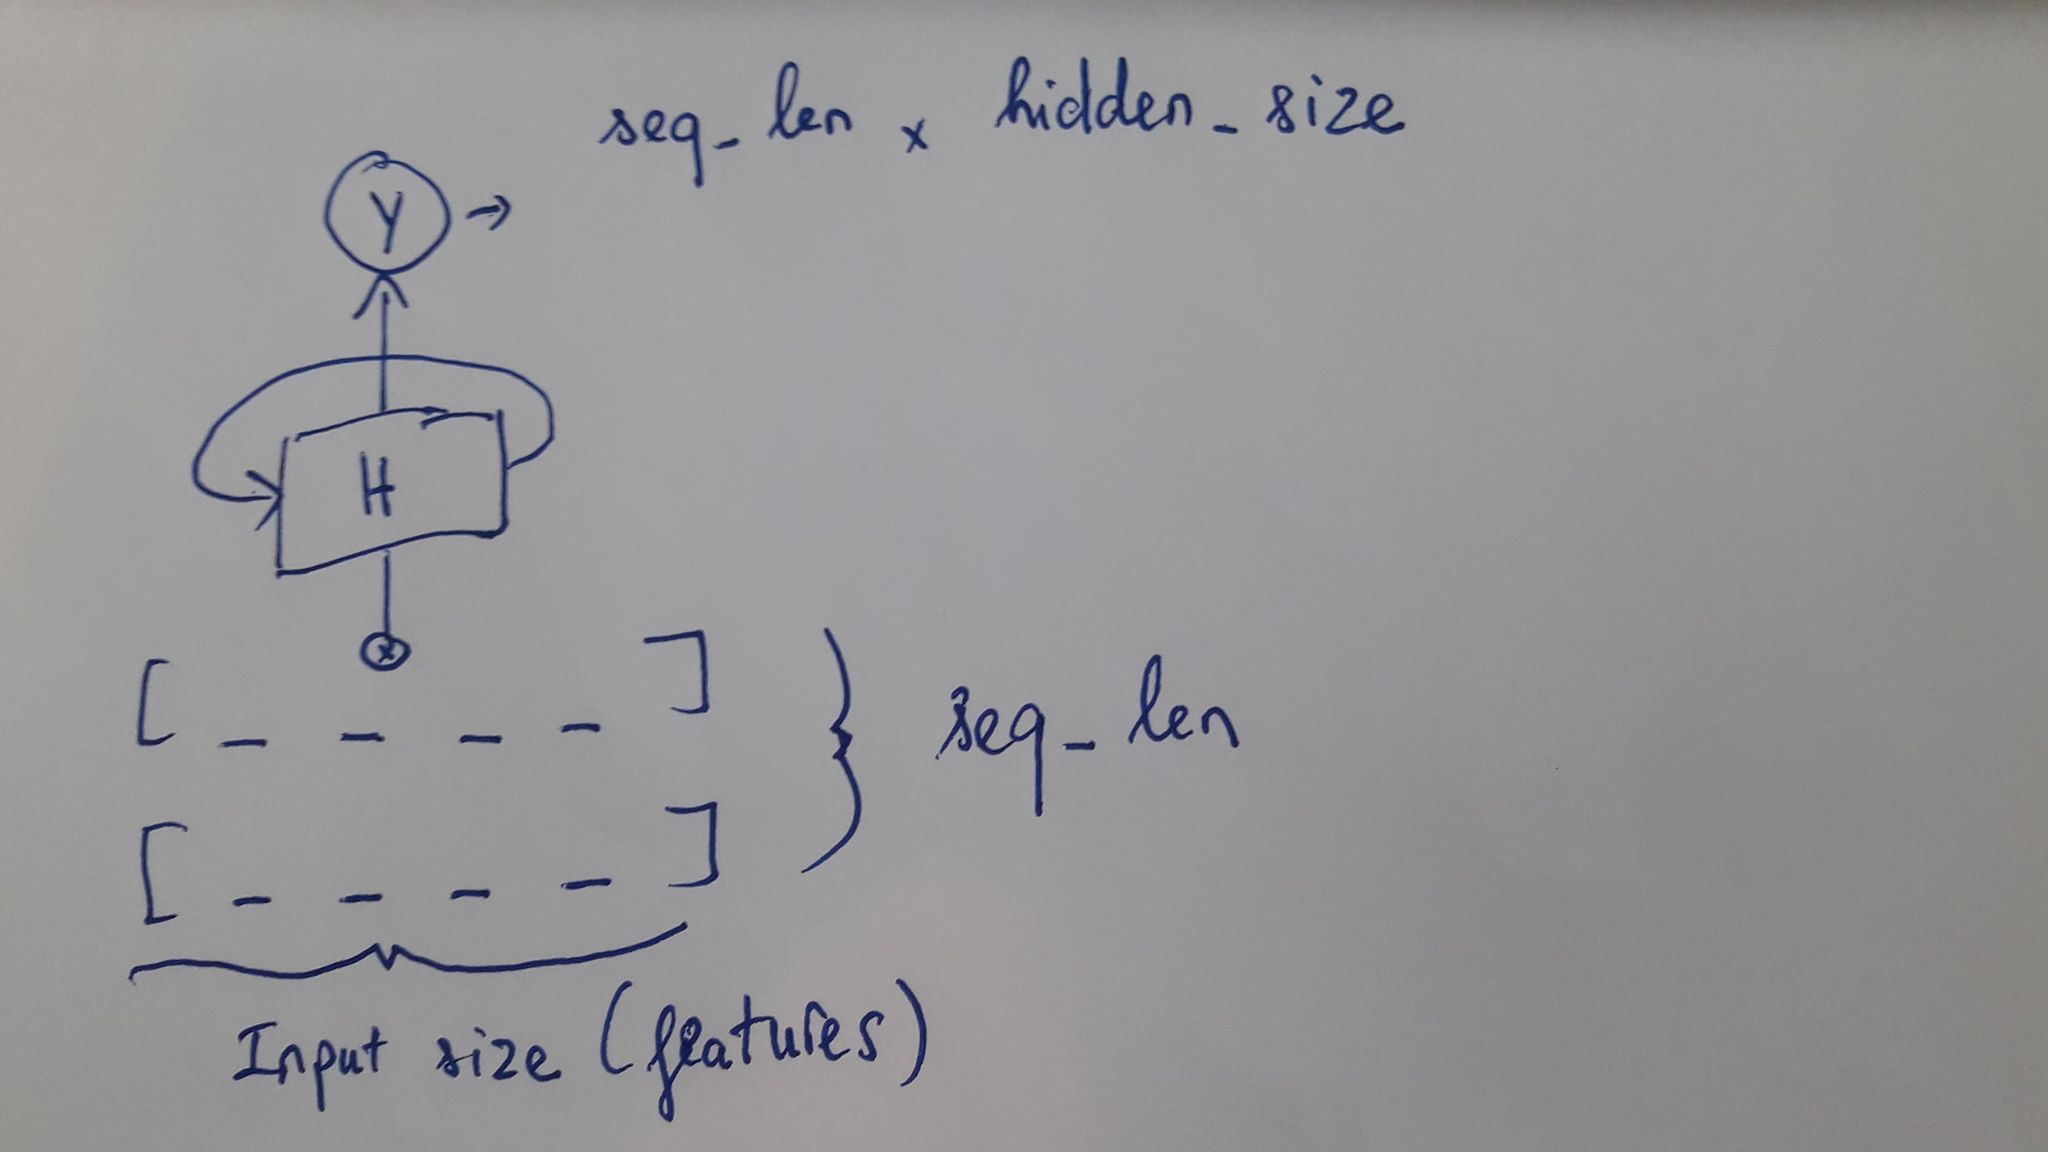 seq_len x hidden_size
Y →
H
x
[ _ _ _ _ ]
seq_len
[ _ _ _ _ ]
Input size (features)